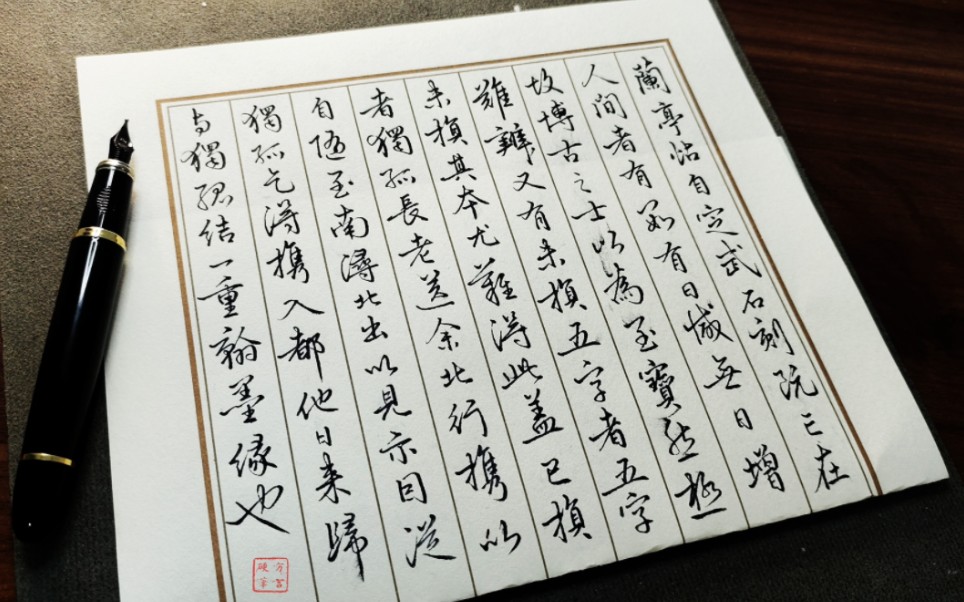 蘭亭帖自定武石刻既亡在
人間者有數有日減無日增
故博古之士以為至寶然極
難辨又有未損五字者五字
未損其本尤難得此蓋已損
者獨孤長老送余北行携以
自隨至南潯北出以見示因從
獨孤乞得携入都他日来歸
与獨孤結一重翰墨緣也